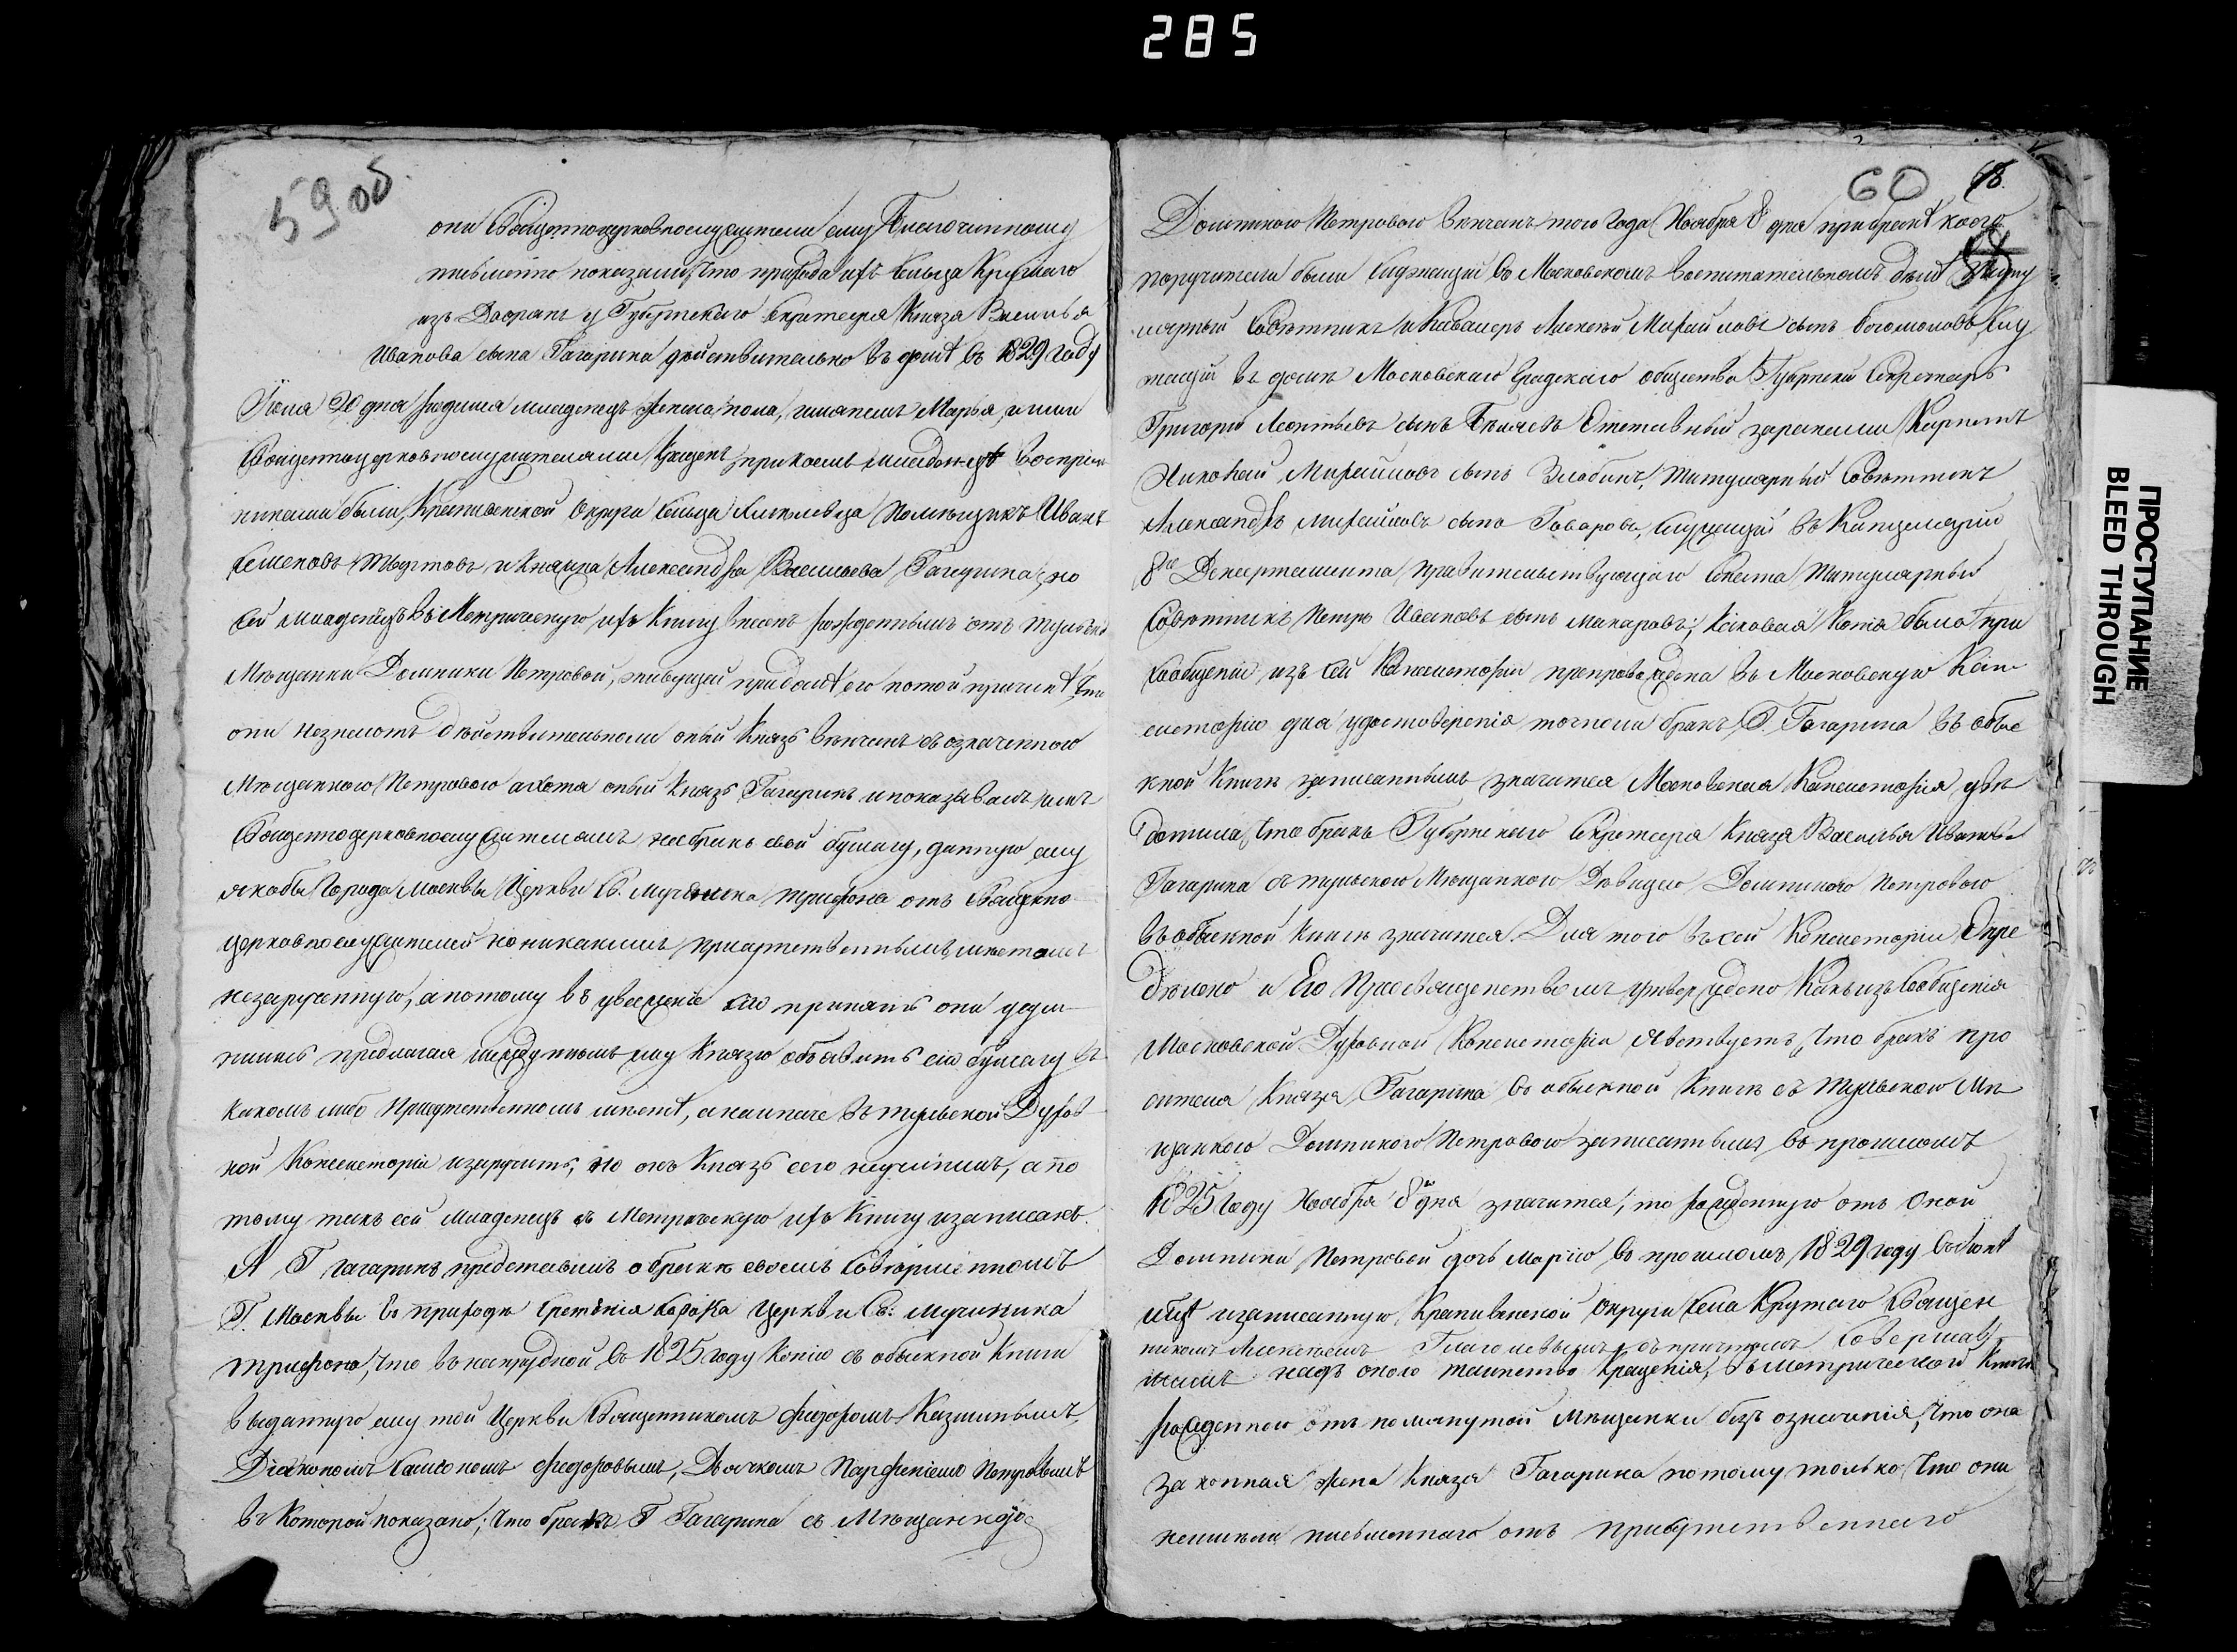 285
59 об
они Священноцерковнослужители ему Благочинному
письменно показали, что прихода ихъ сельца Крутаго
изъ Дворянъ у Губернскаго Секретаря Князя Василья
Иванова сына Гагарина действительно въ доме въ 1829 году
Июля 20 дня родился младенецъ женска пола, имянемъ Марья, и ими
Священноцерковнослужителями крещенъ, при коемъ младенце воспрiем
никами были, Крапивенской Округи сельца Помещикъ Иванъ
Семеновъ и Княжна Александра Васильева Гагарина, но
сей младенецъ въ Метрическую ихъ Книгу внесенъ рожденнымъ отъ Тульской
Мещанки Домники Петровой, живущей при доме его потой причине что
они незнаютъ действительноли оный Князь венчанъ съ означенною
Мещанкою Петровою ахотя оный Князь Гагаринъ и показывалъ имъ
Священноцерковнослужителямъ на бракъ свой бумагу, данную ему
якобы Города Москвы Церкви Св. Мученика Трифона отъ Священно
церковнослужителей но никакимъ присутственнымъ местомъ
незарученную, а потому въ уваженiе сiю принять они
предлагая ему Князю объявить сiю бумагу въ
какомъ либо Присутственномъ месте, а наипаче въ тульской Духов
ной Консисторiи изаручить, но онъ Князь сего неучинилъ, а по
тому такъ сей младенецъ въ Метрическую ихъ Книгу изаписанъ.
А Г Гагаринъ представилъ о браке своемъ совершенномъ
Г. Москвы въ приходе Сретенiя Сорока Церкви Св: Мученика
Трифона, что въ напрудной въ 1825 году Копiю съ обыскной Книги
выданную ему той Церкви Священникомъ Федоромъ Казминымъ,
Дiакономъ Симеономъ Федоровымъ, Дьячкомъ Парфенiемъ Петровымъ
въ Которой показано; что бракъ Г Гагарина съ Мещанкою
60 68.
Домникою Петровою венчанъ того Года Ноября 8 дня при браке коего
поручители были Служащiй въ Московскомъ Воспитательномъ доме Титу
лярный Советникъ и Кавалеръ Алексей Михайловъ сынъ Богомоловъ, Слу
жащiй въ доме Московскаго Градскаго общества Губернскiй Секретарь
Григорiй Леонтьевъ сынъ Беляевъ Отставный
Николай Михайловъ сынъ Злобинъ, Титулярный Советникъ
Александръ Михайловъ сынъ Говоровъ, Служащiй въ Канцелярiи
8го Департамента Правительствующаго Сената Титулярный
Советникъ Петръ Ивановъ сынъ Макаровъ; Каковая Копiя была при
Сообщенiи изъ сей Консисторiи препровождена въ Московскую Кон
систорiю для удостоверенiя точноли бракъ Г. Гагарина въ обыс
кной Книге записаннымъ значится Московская Консисторiя уве
домила, что бракъ Губернскаго Секретаря Князя Василья Иванова
Гагарина съ тульскою Мещанкою Девицею Домникою Петровою
въ обыскной Книге значится. Для того въ сей Консисторiи Опре
делено и Его Преосвященствомъ утверждено Какъ изъ Сообщенiя
Московской Духовной Консисторiи явствуетъ, что бракъ про
сителя Князя Гагарина въ обыскной Книге съ Тульскою Ме
щанкою Домникою Петровою записаннымъ въ прошломъ
1825 Году Ноября 8 дня значится, то рожденную отъ оной
Домники Петровой дочь Марiю въ прошломъ 1829 году
изаписанную, Крапивенской Округи Села Крутаго Священ
никомъ Алексеемъ Глаголевымъ съ причтомъ совершав
шимъ надъ оною таинство Крещенiя, въ метрической Книге
рожденною отъ помянутой Мещанки безъ означенiя, что она
законная жена Князя Гагарина потому только, что они
неимели письменнаго отъ присутственнаго
ПРОСТУПАНИЕ
BLEED THROUGH